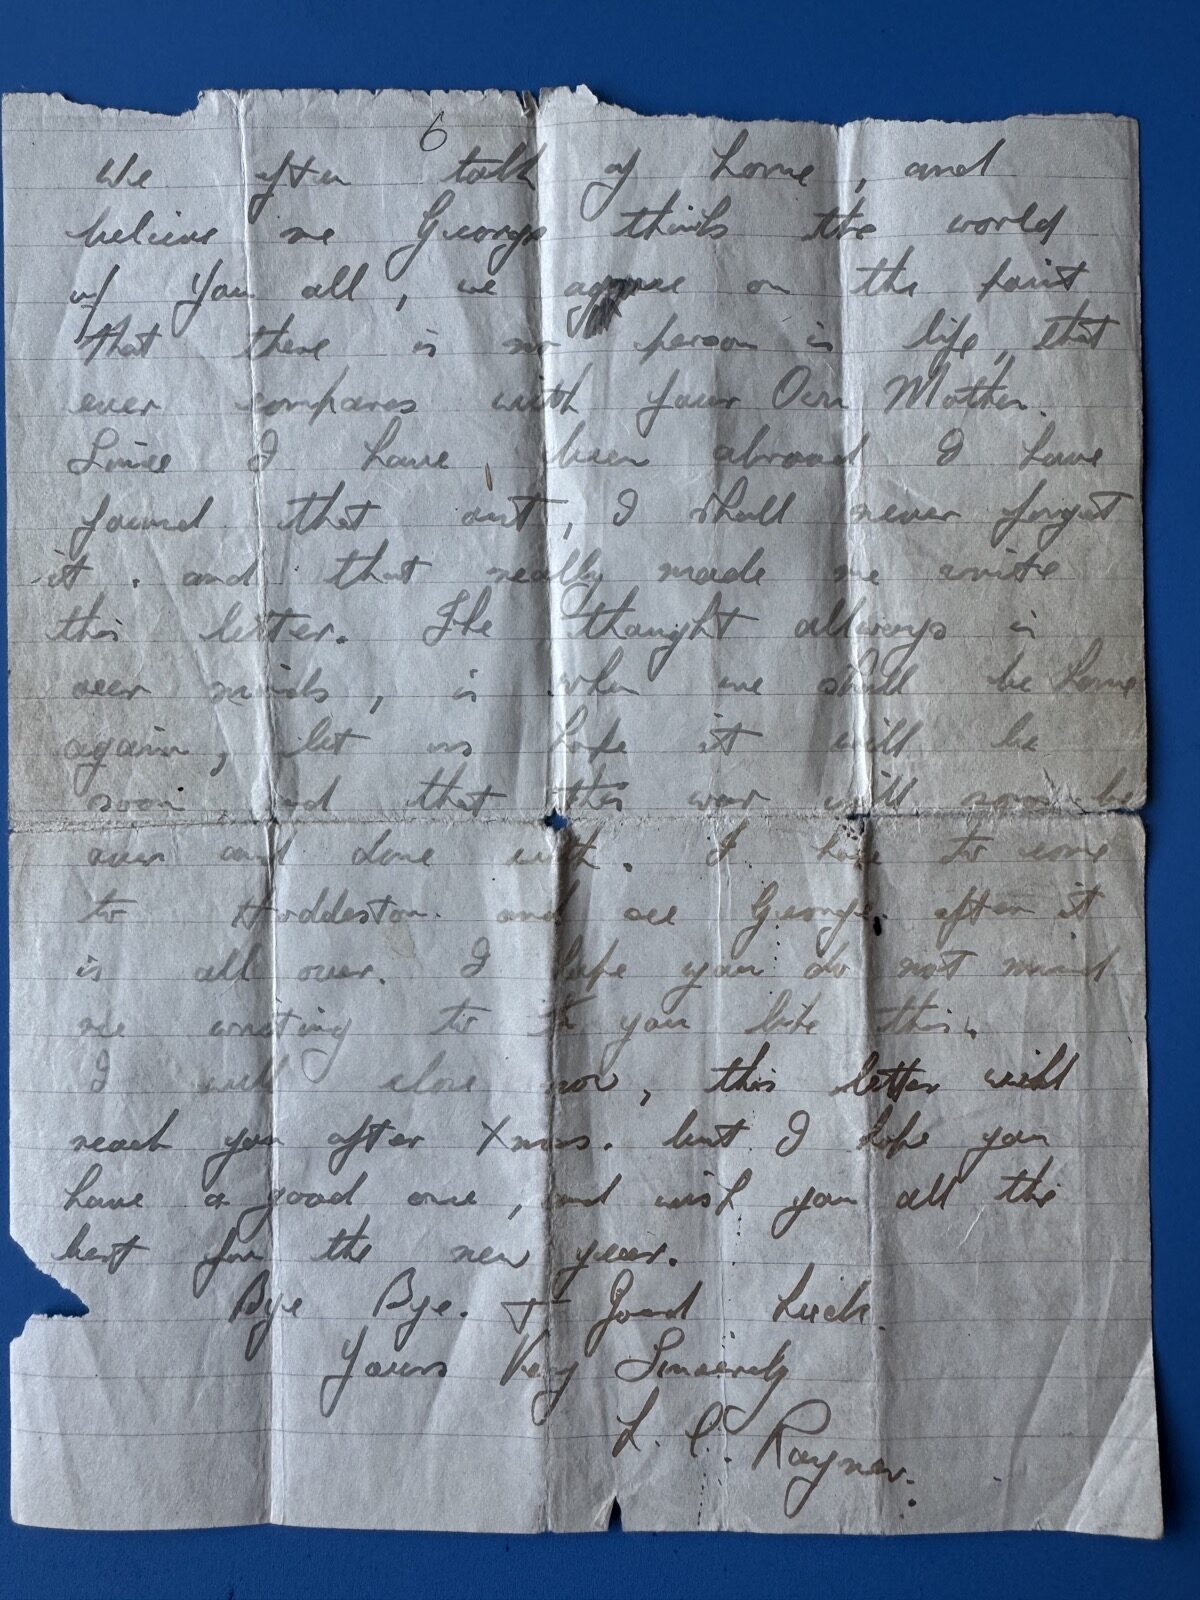 6
We often talk of home, and
believe me George thinks the world
of You all, we agree on the point
that there is no person in life, that
ever compares with your Own Mother.
Since I have been abroad I have
found that out, I shall never forget
it, and that really made me write
this letter. The thought allways in
our minds, is when we shall be home
again, let us hope it will be
soon and that this war will soon be
over and done with. I hope to come
to Hoddeston and see George after it
is all over. I hope you do not mind
me writing to you like this.
I will close now, this letter will
reach you after Xmas. but I hope you
have a good one, and wish you all the
best for the new year.
Bye Bye. + Good Luck.
Yours Very Sincerely
L. C. Rayner.